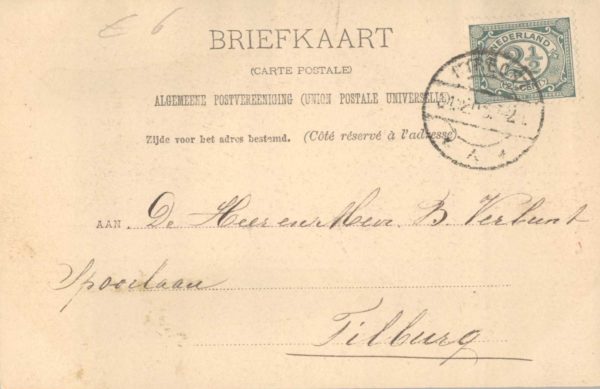 £ 6
BRIEFKAART
(CARTE POSTALE)
ALGEMEENE POSTVEREENIGING (UNION POSTALE UNIVERSELLE)
Zijde voor het adres bestemd. (Côté réservé à l'adresse)
NEDERLAND
2½
CENT
AAN. De Heer en Mevr. B Verbunt
Spoorlaan
Tilburg